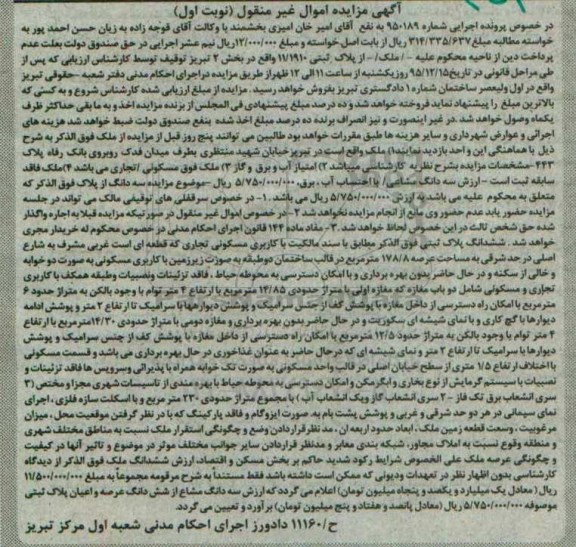 آگهی مزایده اموال غیر منقول (نوبت اول)
در خصوص پرونده اجرایی شماره ۹۵۰۱۸۹ به نفع آقای امیر خان امیری بخشمند با وکالت آقای قوجه زاده به زیان حسن احمد پور به
خواسته مطالبه مبلغ ۳۱۴/۳۳۵/۶۳۷ ریال از بابت اصل خواسته و مبلغ ۱۲/۰۰۰/۰۰۰ ریال نیم عشر اجرایی در حق صندوق دولت بعلت عدم
پرداخت دین از ناحیه محکوم علیه - /ملک/ - از پلاک ثبتی ۱۱/۱۹۱۰ واقع در بخش ۲ تبریز توقیف توسط کارشناس ارزیابی که پس از
طی مراحل قانونی در تاریخ ۹۵/۱۲/۱۵ روز یکشنبه از ساعت ۱۱ الی ۱۲ ظهر از طریق مزایده در اجرای احکام مدنی دفتر شعبه -حقوقی تبریز
واقع در اول ولیعصر ساختمان شماره ۱ دادگستری تبریز بفروش خواهد رسید. مزایده از مبلغ ارزیابی شده کارشناس شروع و به کسی که
بالاترین مبلغ را پیشنهاد نماید فروخته خواهد شد و ده درصد مبلغ پیشنهادی فی المجلس از برنده مزایده اخذ و به مابقی حداکثر ظرف
یکماه وصول خواهد شد. در غیر اینصورت و نیز انصراف برنده ده درصد مبلغ اخذ شده بنفع صندوق دولت ضبط خواهد شد هزینه های
اجرائی و عوارض شهرداری و سایر هزینه ها طبق مقررات خواهد بود طالبین می توانند پنج روز قبل از مزایده از ملک فوق الذکر به شرح
ذیل با هماهنگی این واحد بازدید نمایند۱) ملک واقع است در تبریز خیابان شهید منتظری بطرف میدان فدک روبروی بانک رفاه پلاک
۴۴۳ -مشخصات مزایده بشرح نظریه کارشناسی میباشد ۲) امتیاز آب و برق و گاز ۳) ملک فوق مسکونی /تجاری می باشد ۴)ملک فاقد
سابقه ثبت است - ارزش سه دانگ مشاعی/ با احتساب آب، برق، ۵/۷۵۰/۰۰۰/۰۰۰ ریال -موضوع مزایده سه دانگ از پلاک فوق الذکر که
متعلق به محکوم علیه می باشد به ارزش ۵/۷۵۰/۰۰۰/۰۰۰ ریال می باشد. ۱- در خصوص سرقفلی های توقیفی مالک می تواند در جلسه
مزایده حضور یابد عدم حضور وی مانع از انجام مزایده نخواهد شد ۲- در خصوص اموال غیر منقول در صورتیکه مزایده قبلا به اجاره واگذار
شده حق شخص ثالث در این خصوص لحاظ خواهد شد. ۳- مفاد ماده ۱۴۴ قانون اجرای احکام مدنی در خصوص محکوم له خریدار مجری
خواهد شد. ششدانگ پلاک ثبتی فوق الذکر مطابق با سند مالکیت با کاربری مسکونی تجاری که قطعه ای است غربی مشرف به شارع
اصلی در حد شرقی به مساحت عرصه ۱۷۸/۸ مترمربع در قالب ساختمان دوطبقه به صورت زیرزمین با کاربری مسکونی به صورت دو خوابه
و خالی از سکنه و در حال حاضر بدون بهره برداری و با امکان دسترسی به محوطه حیاط، فاقد تزئینات ونصبیات وطبقه همکف با کاربری
تجاری و مسکونی شامل دو باب مغازه که مغازه اولی با متراژ حدودی ۱۴/۸۵ مترمربع با ارتفاع ۴ متر توام با وجود بالکن به متراژ حدود ۶
مترمربع با امکان راه دسترسی از داخل مغازه با پوشش کف از جنس سرامیک و پوشش دیوارها با سرامیک تا ارتفاع ۲ متر و پوشش ادامه
دیوارها با گچ کاری و با نمای شیشه ای سکوریت و در حال حاضر بدون بهره برداری و مغازه دومی با متراژ حدودی ۱۴/۳۰ مترمربع با ارتفاع
۴ متر توام با وجود بالکن به متراژ حدود ۱۲/۵ مترمربع با امکان راه دسترسی از داخل مغازه با پوشش کف از جنس سرامیک و پوشش
دیوارها با سرامیک تا ارتفاع ۲ متر و نمای شیشه ای که در حال حاضر به عنوان غذاخوری در حال بهره برداری می باشد و قسمت مسکونی
با اختلاف ارتفاع ۱/۵ متری از سطح خیابان اصلی در قالب واحد مسکونی به صورت تک خوابه همراه با پذیرائی وسرویس ها فاقد تزئینات و
نصبیات با سیستم گرمایش از نوع بخاری و ابگرمکن و امکان دسترسی به محوطه حیاط با بهره مندی از تاسیسات شهری مجزا و مختص (۳
سری انشعاب برق تک فاز - ۲ سری انشعاب گاز ویک انشعاب آب) با مجموع متراژ حدودی ۲۳۰ متر مربع و با اسکلت سازه فلزی، اجرای
نمای سیمانی در هر دو حد شرقی و غربی و پوشش پشت بام به صورت ایزوگام و فاقد پارکینگ که با در نظر گرفتن موقعیت محل، میزان
مرغوبیت، وسعت قطعه زمین ملک، ابعاد حدود اربعه ان، مد نظر قراردادن وضع و چگونگی استقرار ملک نسبت به مناطق مختلف شهری
و منطقه وقوع نسبت به املاک مجاور، شبکه بندی معابر و مدنظر قراردادن سایر جوانب مختلف موثر در موضوع و تاثیر آنها در کیفیت
و چگونگی عرصه ملک علی الخصوص شرایط رکود شدید حاکم بر بخش مسکن و اقتصاد، ارزش ششدانگ ملک فوق الذکر از دیدگاه
کارشناسی بدون اظهار نظر در تعهدات ودیونی که ممکن است داشته باشد فقط مستندأ به شرح مرقومه مجموعأ به مبلغ ۱۱/۵۰۰/۰۰۰/۰۰۰
ریال (معادل یک میلیارد و یکصد و پنجاه میلیون تومان) اعلام می گردد که ارزش سه دانگ مشاع از شش دانگ عرصه و اعیان پلاک ثبتی
موصوفه ۵/۷۵۰/۰۰۰/۰۰۰ ریال (معادل پانصد و هفتاد و پنج میلیون تومان) برآورد و تعیین می گردد.
ح/۱۱۱۶۰ دادورز اجرای احکام مدنی شعبه اول مرکز تبریز